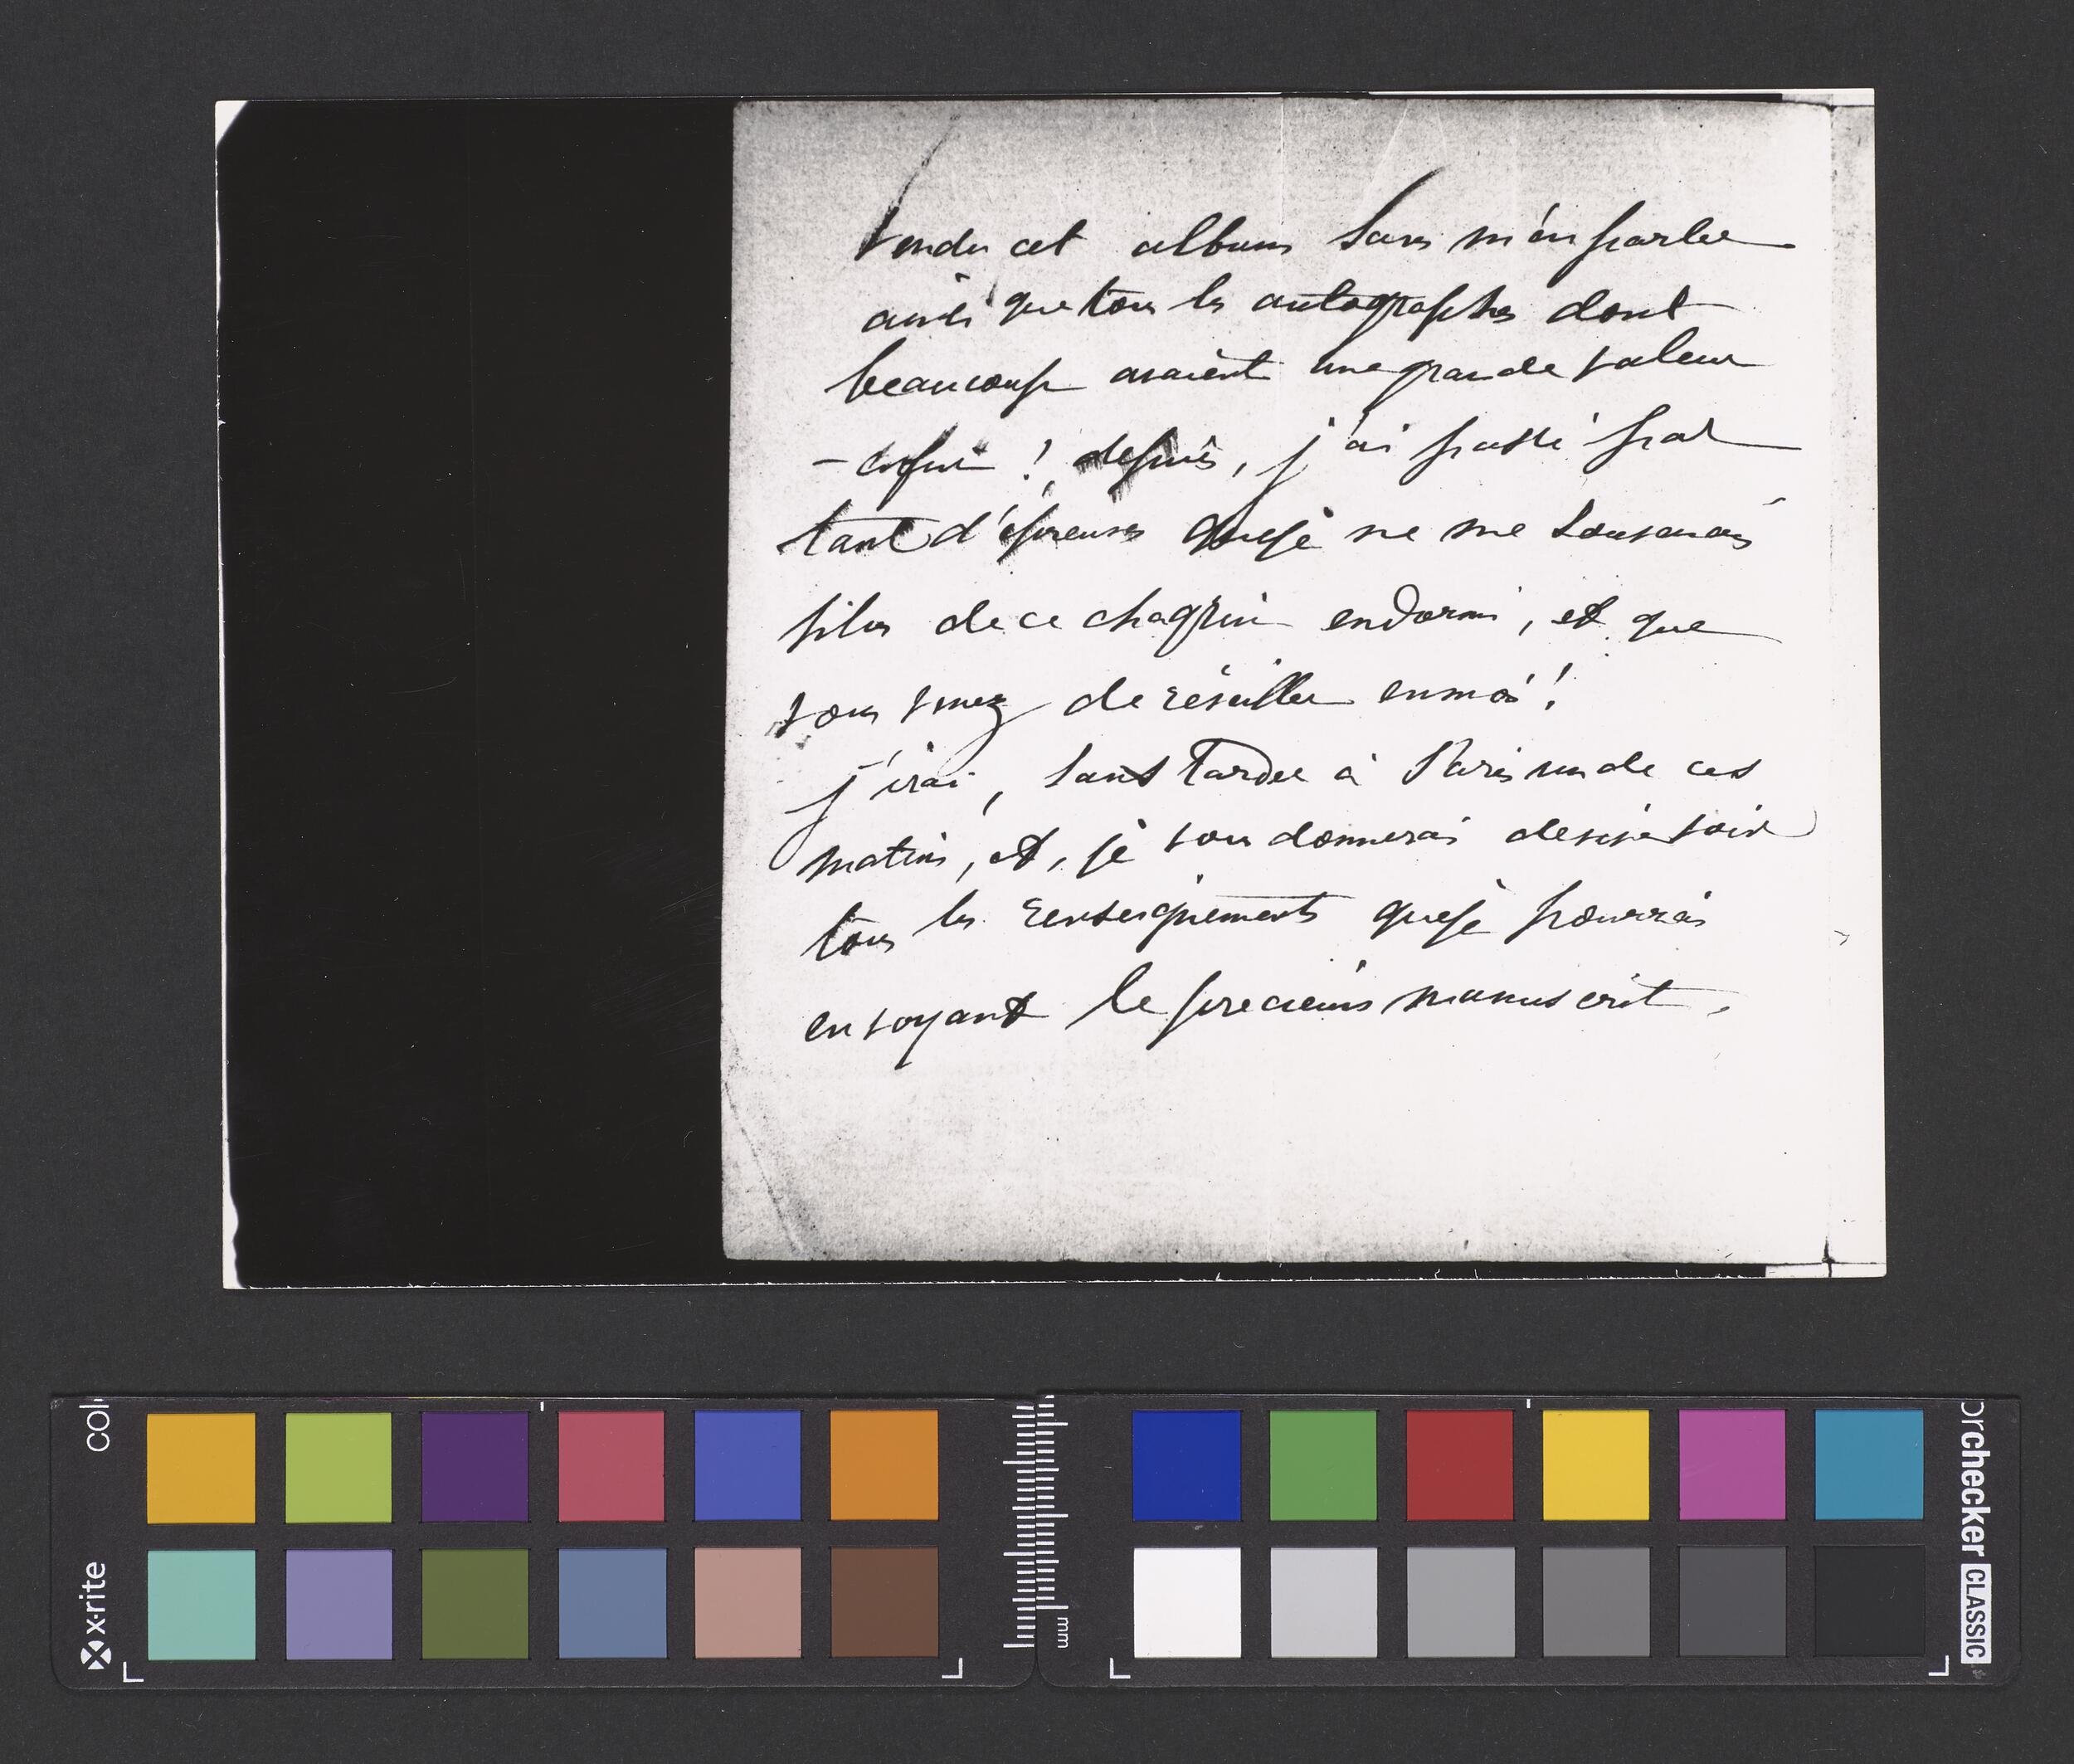 vendu cet album sans m'en parler
ainsi que tous les autographes dont
beaucoup avaient une grande valeur
- enfin ! depuis, j'ai passé par
tant d'épreuves que je ne me souvenais
plus de ce chagrin endormi, et que
vous venez de réveiller en moi !
j'irai, sans tarder à Paris un de ces
matins, et, je vous donnerai de vive voix
tous les renseignements que je pourrai
en voyant le precieux manuscrit.
x-rite
col
mm
orchecker CLASSIC